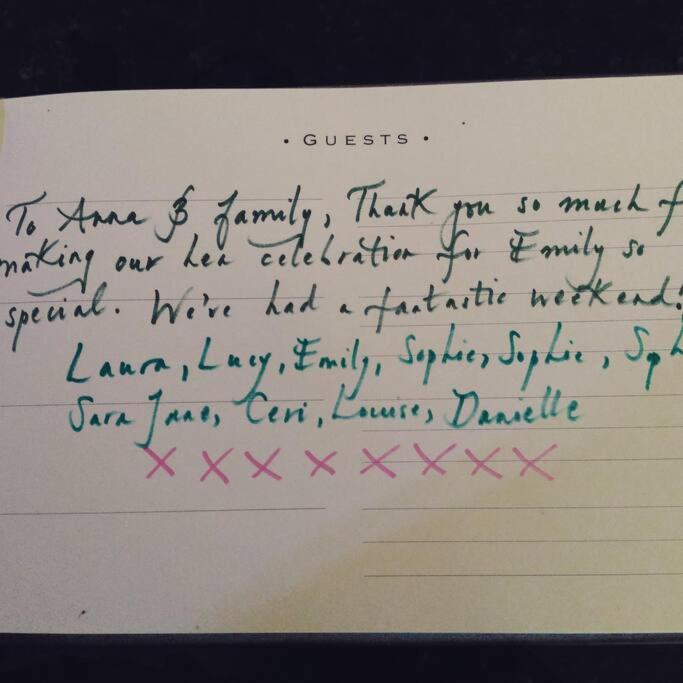 • GUESTS •
To Anna & family, Thank you so much f
making our hen celebration for Emily so
special. We've had a fantastic weekend!
Laura, Lucy, Emily, Sophie, Sophie, Soph
Sara Jane, Ceri, Louise, Danielle
x x x x x x x x